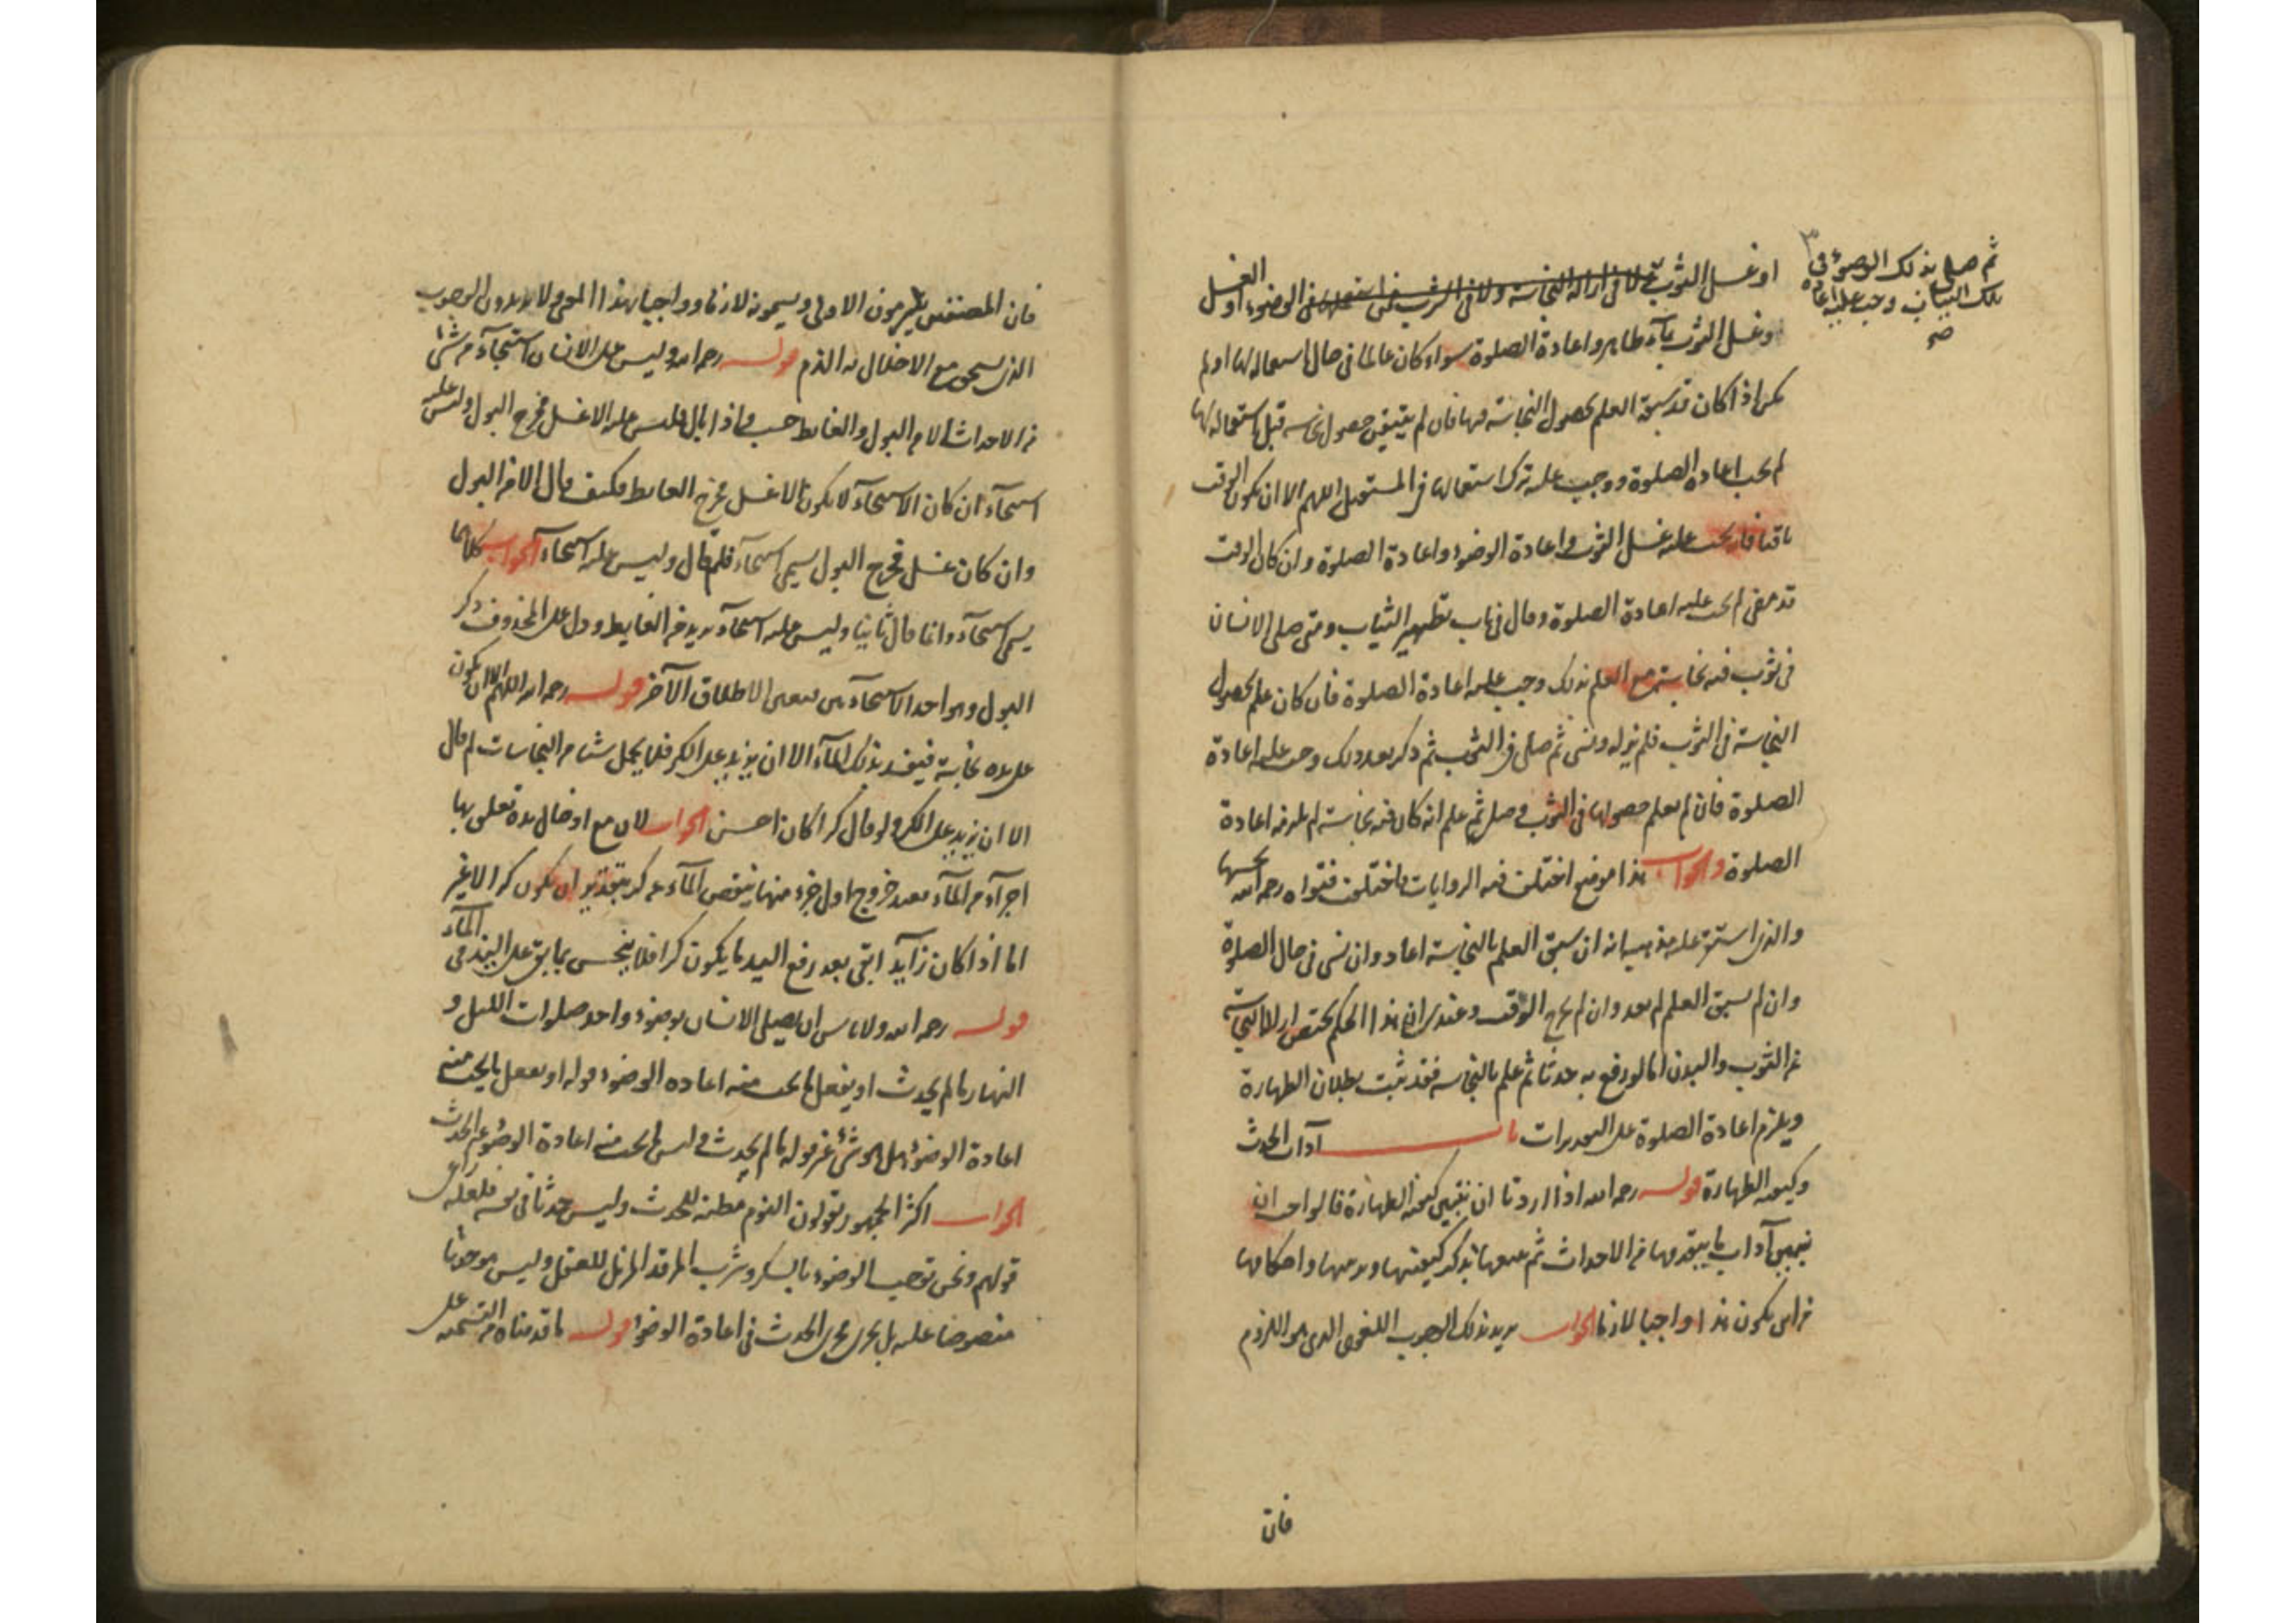 ثم صلى بذلك الوضوء في
تلك الثياب وجب عليه اعادة
صح
او غسل الثوب لا في ازالة النجاسة ولا في الشرب فمن استعملها في الوضوء او الغسل
وغسل الثوب بمآء طاهر واعادة الصلوة سواء كان عالما في حال استعماله لها او لم
يكن اذا كان قد سبقه العلم بحصول النجاسة فيها فان لم يتيقن حصول نجاسة قبل استعماله لها
لم يجب اعادة الصلوة ووجب عليه ترك استعمالها في المستقبل اللهم الا ان يكون الوقت
باقيا فانه يجب عليه غسل الثوب واعادة الوضوء واعادة الصلوة وان كان الوقت
قد مضى لم يجب عليه اعادة الصلوة وقال في باب تطهير الثياب ومتى صلى الانسان
في ثوب فيه نجاسة مع العلم بذلك وجب عليه اعادة الصلوة فان كان علم بحصول
النجاسة في الثوب فلم يزله ونسى ثم صلى في الثوب ثم ذكر بعد ذلك وجب عليه اعادة
الصلوة فان لم يعلم حصولها في الثوب وصلى ثم علم انه كان فيه نجاسة لم يلزمه اعادة
الصلوة والجواب هذا موضع اختلفت فيه الروايات فاختلفت فتواه رحمه الله بحسبها
والذي استقر عليه مذهبه انه ان سبق العلم بالنجاسة اعاد وان نسى في حال الصلوة
وان لم يسبق العلم لم يعد وان لم يخرج الوقت وعندى ان هذا الحكم يختص ازالة النجاسة
عن الثوب والبدن اما لو رفع به حدثا ثم علم بالنجاسة فقد ثبت بطلان الطهارة
ويلزم اعادة الصلوة على التقديرات باب آداب الحدث
وكيفية الطهارة قوله رحمه الله اذا اردنا ان نبين كيفية الطهارة فالواجب ان
نبين آداب ما يتقدمها من الاحداث ثم نتبعها بذكر كيفيتها وترتيبها واحكامها
من اين يكون هذا واجبا لازما الجواب يريد بذلك الوجوب اللغوى الذى هو اللزوم
فان
فان المصنفين يلتزمون الاولى ويسمونه لازما وواجبا بهذا المعنى ولا يريدون الوجوب
الذى يستحق مع الاخلال به الذم قوله رحمه الله وليس على الانسان استنجآء من شئ
من الاحداث الا من البول والغايط حسب واذا بال فليس عليه الا غسل مخرج البول وليس عليه
استنجآء ان كان الاستنجآء لا يكون الا غسل مخرج الغايط فكيف قال الا من البول
وان كان غسل مخرج البول يسمى استنجآء فلم قال وليس عليه استنجآء الجواب كلاهما
يسمى استنجآء وانما قال ثانيا وليس عليه استنجآء يريد من الغايط ودل على المحذوف ذكر
البول وهو احد الاستنجآءين فبقى الاطلاق الآخر قوله رحمه الله اللهم الا ان يكون
على يده نجاسة فيفسد بذلك المآء الا ان يزيد على الكر فلا يحمل شيئا من النجاسات لم قال
الا ان يزيد على الكر ولو قال كرا كان احسن الجواب لان مع ادخال يده تعلق بها
اجزآء من المآء فبعد خروج اول جزء منها ينقص المآء عن كر بتقدير ان يكون كرا لا غير
اما اذا كان زآيدا بقى بعد رفع اليد ما يكون كرا فلا ينجس بما بقى على اليد من المآء
قوله رحمه الله ولا باس ان يصلى الانسان بوضوء واحد صلوات الليل و
النهار ما لم يحدث او يفعل ما يجب منه اعادة الوضوء قوله او يفعل ما يجب منه
اعادة الوضوء هل هو شئ غير قوله ما لم يحدث وليس ما يجب منه اعادة الوضوء غير الحدث
الجواب اكثر الجمهور يقولون النوم مظنة للحدث وليس حدثا في نفسه فلعله راى
قولهم ونحن نوجب الوضوء بالسكر وشرب المرقد المزيل للعقل وليس هو حدثا
منصوصا عليه بل يجرى مجرى الحدث في اعادة الوضوء قوله ما قدمناه من التسمية على